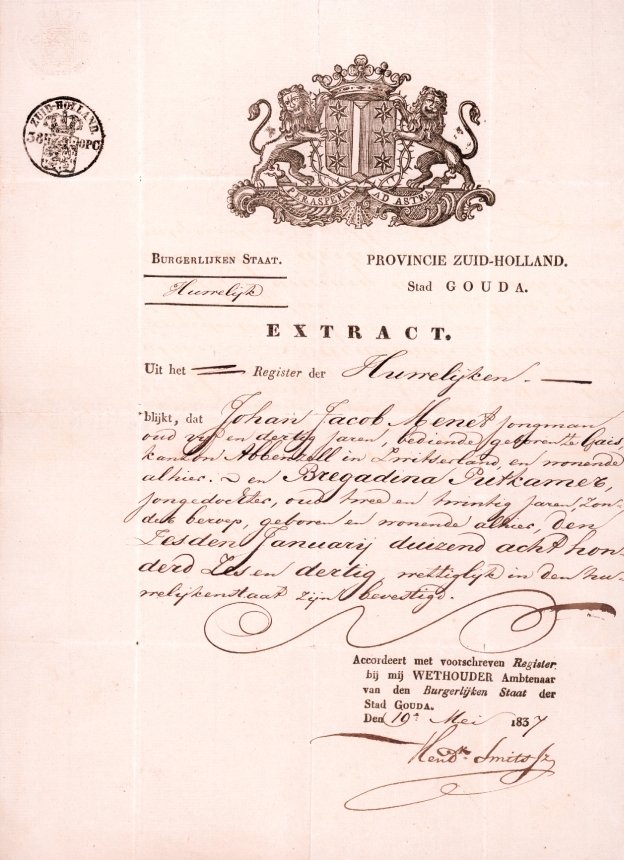 ZUID-HOLLAND
38 OPC
PER ASPERA AD ASTRA
BURGERLIJKEN STAAT.
Huwelijk
PROVINCIE ZUID-HOLLAND.
Stad GOUDA.
EXTRACT.
Uit het Register der Huwelijken.
blijkt, dat Johan Jacob Menet jongman
oud vijf en dertig jaren, bediende, geboren te Gais,
kanton Abbenzell in Zwitserland, en wonende
alhier. en Bregadina Putkamer,
jongedochter, oud twee en twintig jaren zon-
der beroep, geboren en wonende alhier, den
Zesden Januarij duizend acht hon
derd Zes en dertig wettiglijk in den hu-
welijkenstaat zijn bevestigd.
Accordeert met voorschreven Register
bij mij WETHOUDER Ambtenaar
van den Burgerlijken Staat der
Stad GOUDA.
Den 19e Mei 1837
Hendk Smits Jz